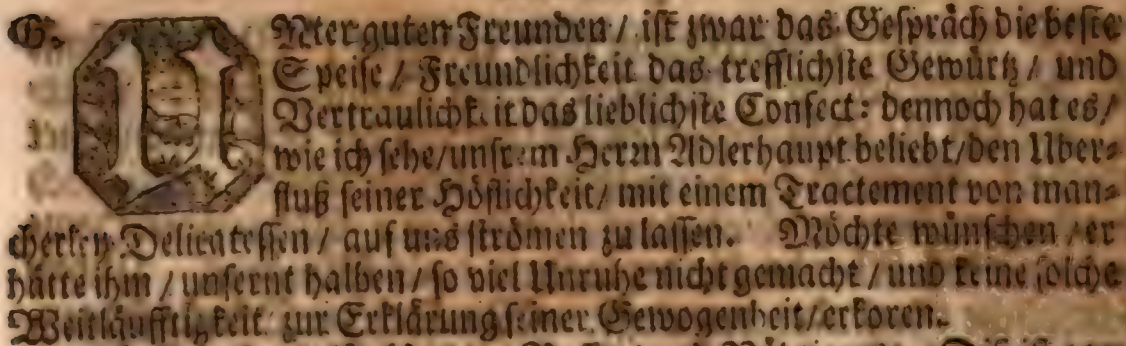 G. UNter guten Freunden / ist zwar das Gespräch die beste
Speise / Freundlichkeit das trefflichste Gewürtz / und
Vertraulichkeit das lieblichste Confect: dennoch hat es /
wie ich sehe / unsrem Herrn Adlerhaupt beliebt / den Uber-
fluß seiner Höflichkeit / mit einem Tractement von man-
cherley Delicatessen / auf uns strömen zu lassen. Möchte wünschen / er
hätte ihm / unsernt halben / so viel Unruhe nicht gemacht / und keine solche
Weitläufftigkeit zur Erklärung seiner Gewogenheit / erkoren.